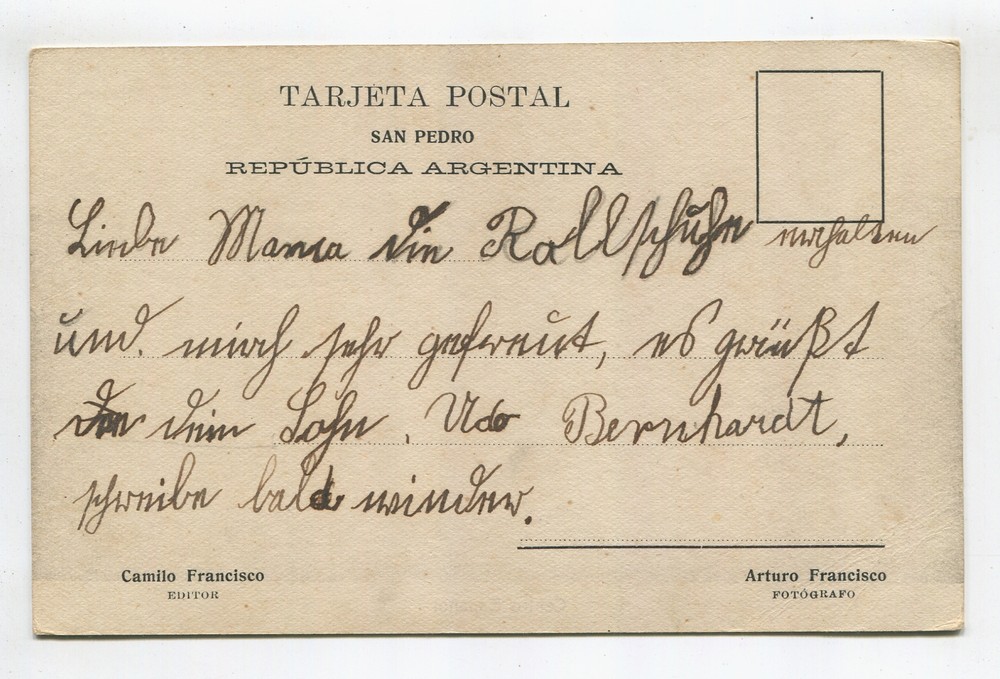 TARJETA POSTAL
SAN PEDRO
REPÚBLICA ARGENTINA
Liebe Mama die Rollschuhe erhalten
und. mich sehr gefreut, es grüßt
dein Sohn, Udo Bernhardt,
schreibe bald wieder.
Camilo Francisco
EDITOR
Arturo Francisco
FOTÓGRAFO